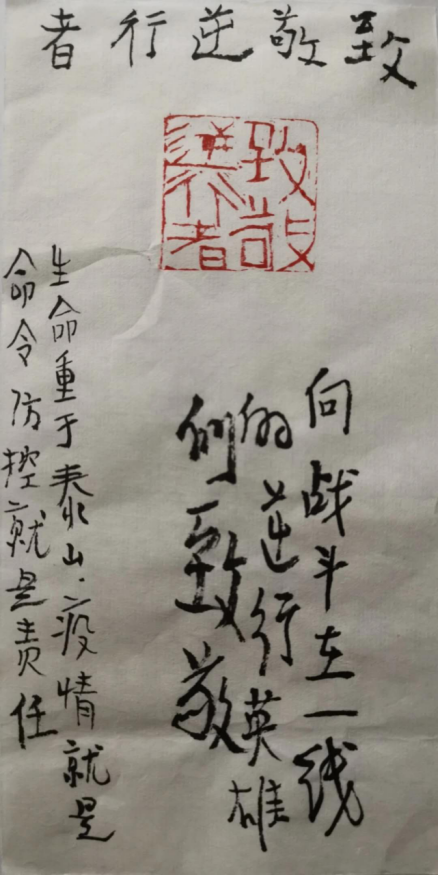 致敬逆行者
致敬逆行者
向战斗在一线
的逆行英雄
们致敬
生命重于泰山.疫情就是
命令防控就是责任